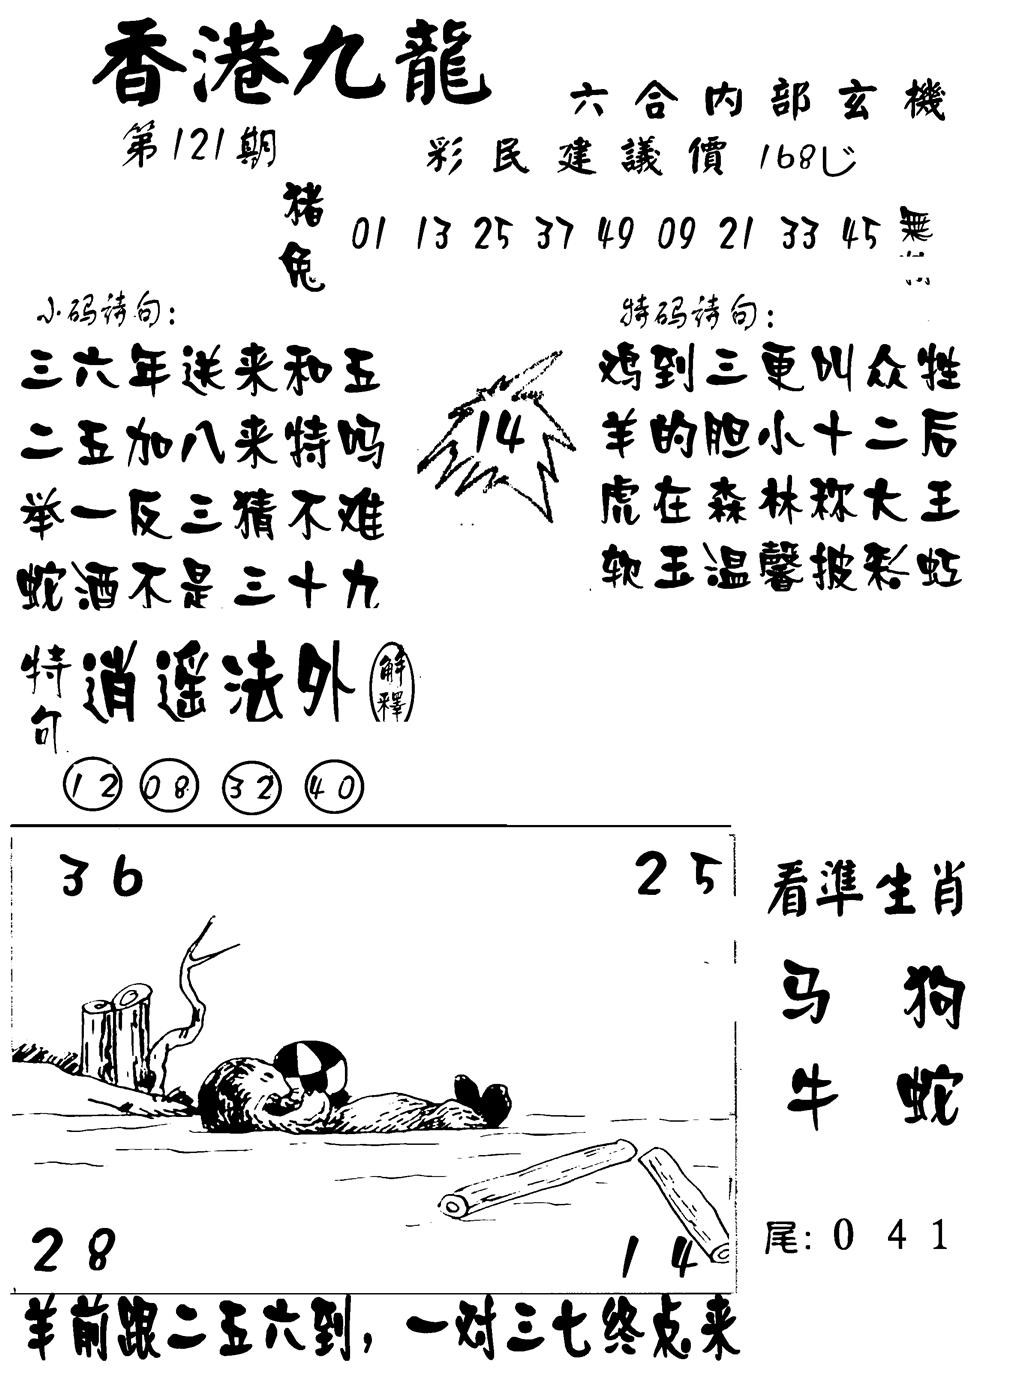 香港九龍
六合内部玄機
第121期
彩民建議價168
猪兔
01 13 25 37 49 09 21 33 45
無
小码诗句:
三六年送来和五
二五加八来特吗
举一反三猜不难
蛇酒不是三十九
14
特码诗句:
鸡到三更叫众牲
羊的胆小十二后
虎在森林称大王
软玉温馨披彩虹
特句
逍遥法外
解釋
12 08 32 40
36
25
28
14
看準生肖
马 狗
牛 蛇
尾: 0 4 1
羊前跟二五六到，一对三七终点来